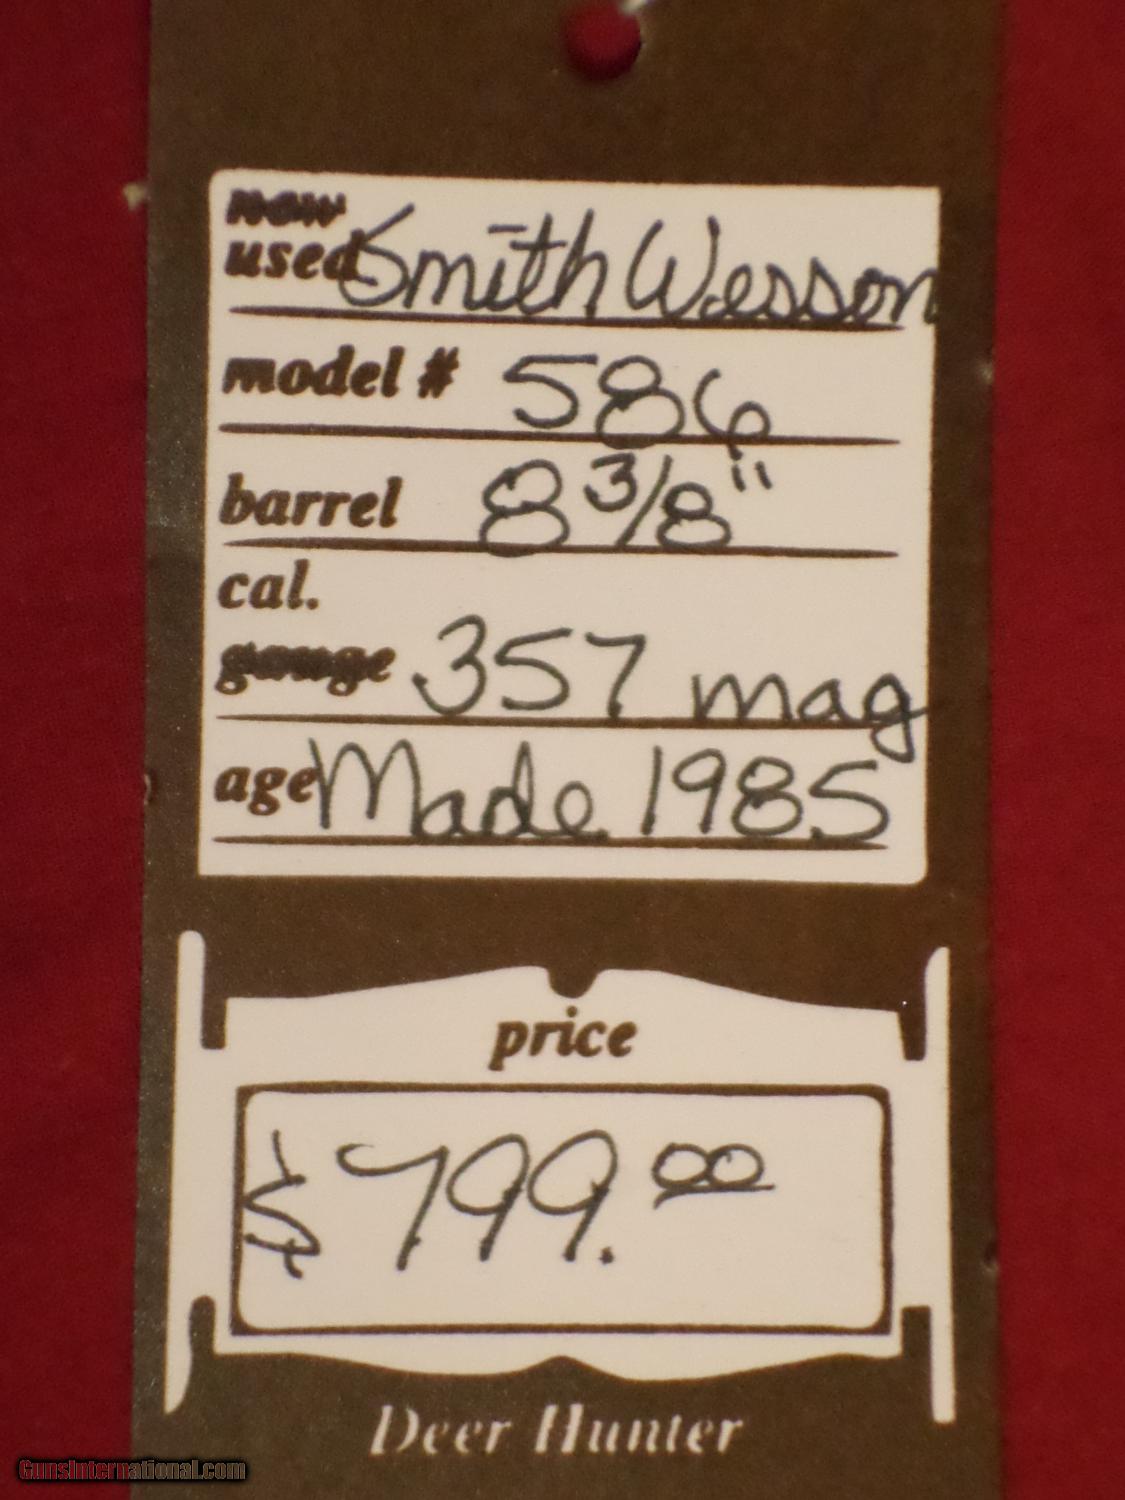 new
used Smith Wesson
model # 586
barrel 8 3/8"
cal.
gauge 357 mag
age Made 1985
price
$799.00
Deer Hunter
GunsInternational.com